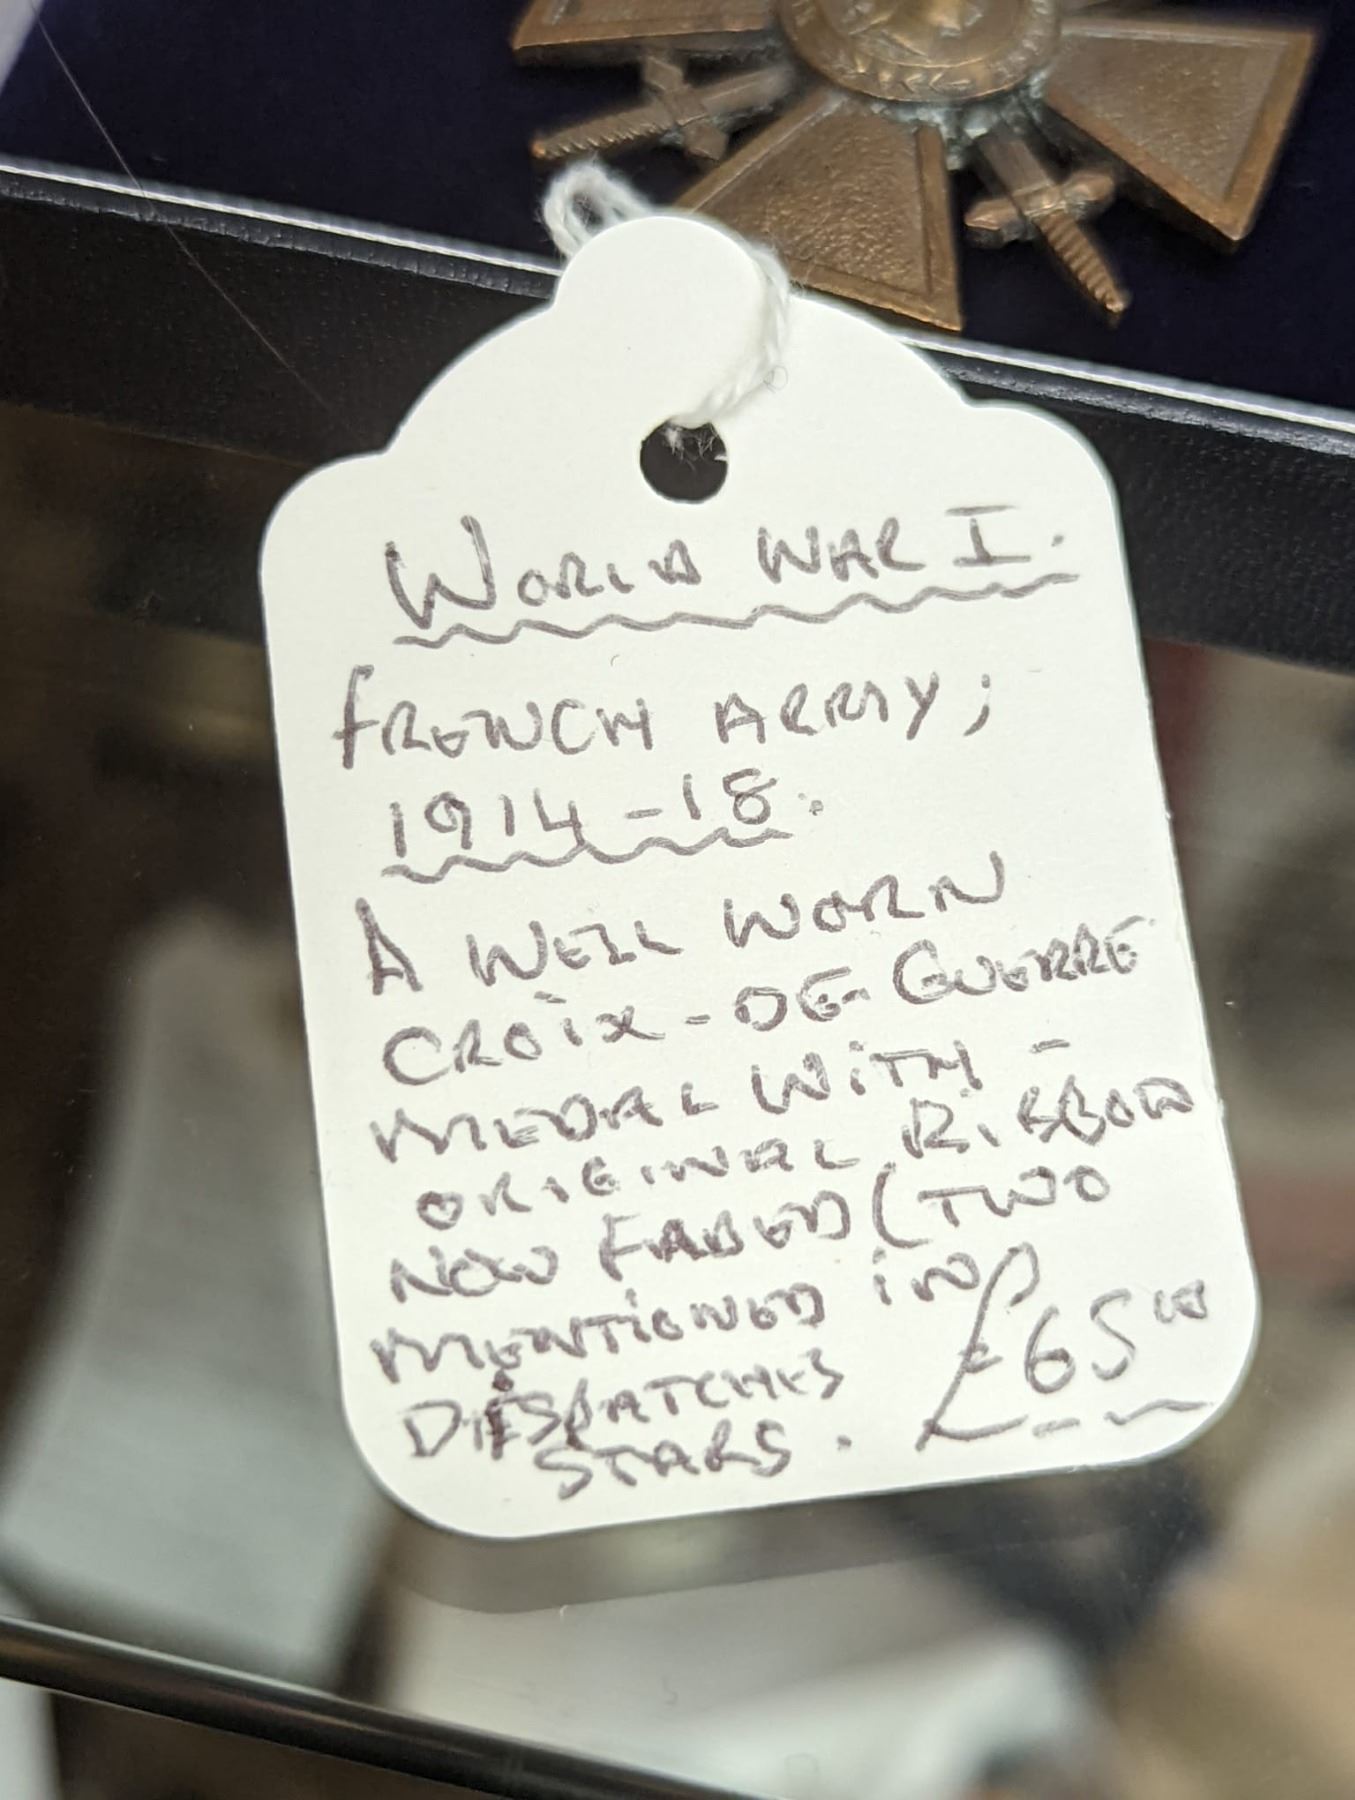 WORLD WAR I.
FRENCH ARMY;
1914-18.
A WELL WORN
CROIX-DE-GUERRE
MEDAL WITH -
ORIGINAL RIBBON
NOW FADED (TWO
MENTIONED IN
DESPATCHES
STARS.
£65